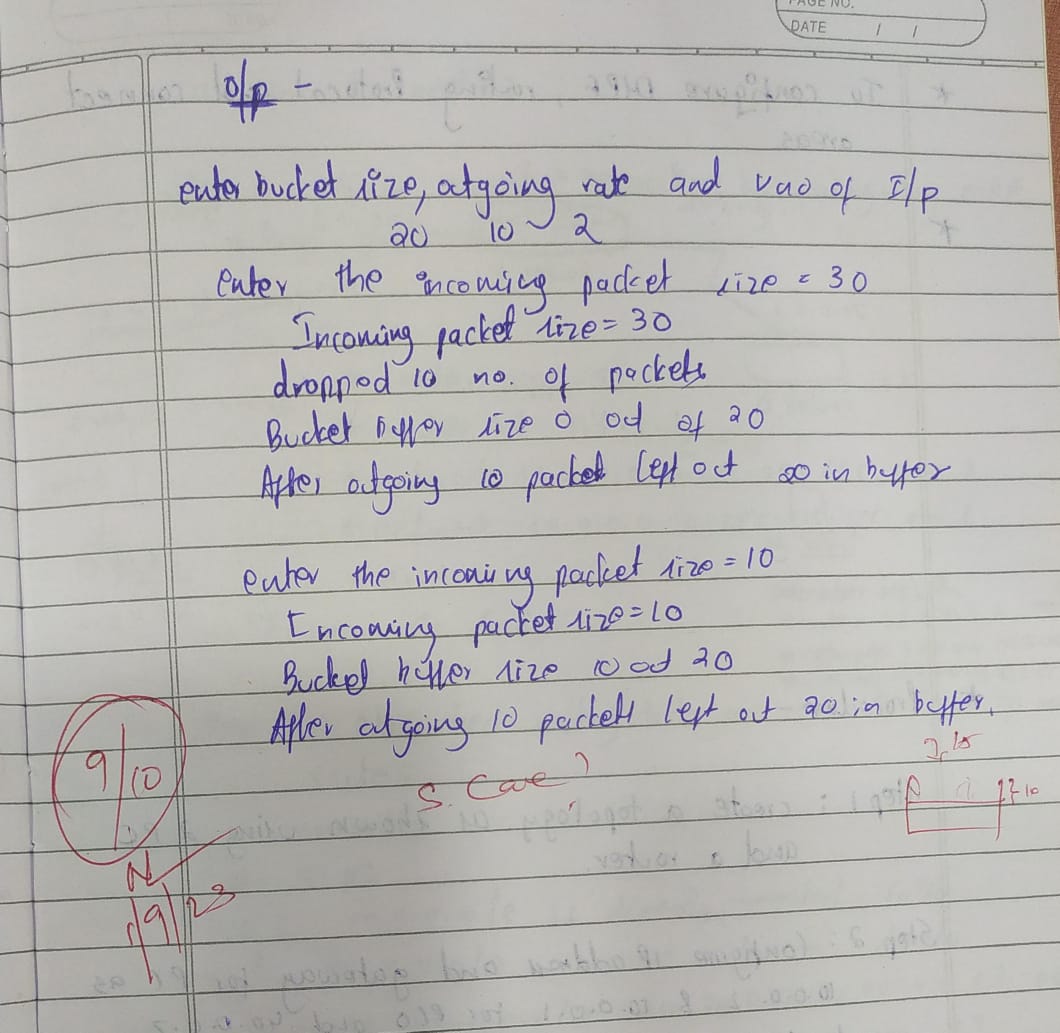 PAGE NO.
DATE / /
o/p -
enter bucket size, outgoing rate and vno of I/p
20 10 2
enter the incoming packet size = 30
Incoming packet size = 30
dropped 10 no. of packets
Bucket buffer size 0 out of 20
After outgoing 10 packet left out 20 in buffer
enter the incoming packet size = 10
Incoming packet size = 10
Bucket buffer size 10 out 20
After outgoing 10 packets left out 20 in buffer.
9/10